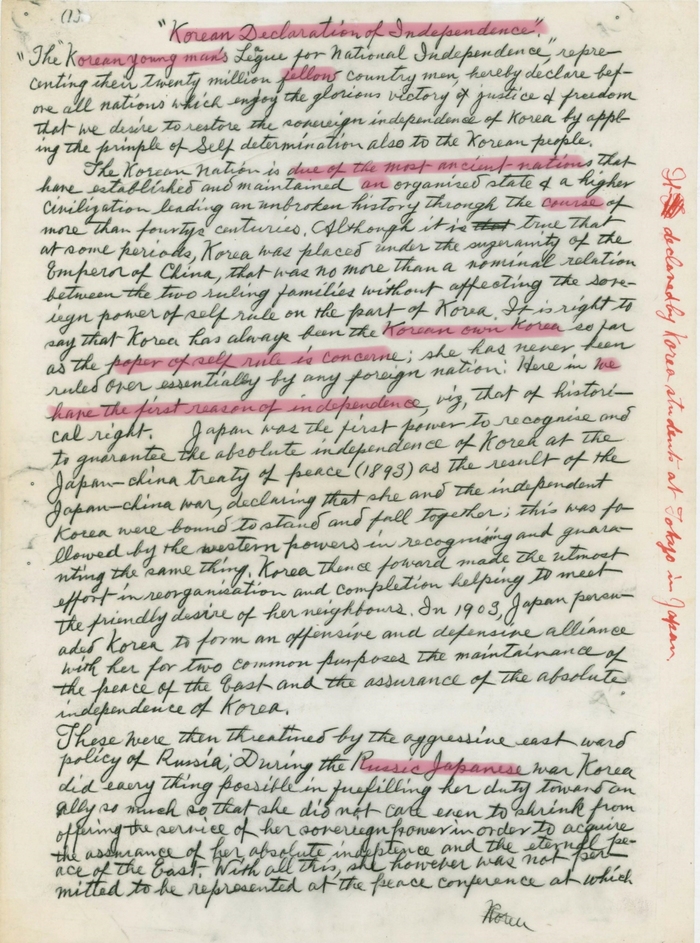 (1).
"Korean Declaration of Independence".
"The "Korean young man's Legue for National Independence," repre-
centing their twenty million fellow country men, hereby declare bef-
ore all nations which enjoy the glorious victory of justice & freedom
that we desire to restore the sovereign independence of Korea by appl-
ing the prinple of Self determination also to the Korean people.
The Korean Nation is due of the most ancient nations that
have established and maintained an organised state & a higher
civilization leading an unbroken history through the course of
more than fourtys centuries. Although it is that true that
at some periods, Korea was placed under the suzerainty of the
Emperor of China, that was no more than a nominal relation
between the two ruling families without affecting the sove-
iegn power of self rule on the part of Korea. It is right to
say that Korea has always been the Korean own Korea so far
as the poper of self rule is concerne; she has never been
ruled over essentially by any foreign nation: Here in we
have the first reason of independence, viz, that of histori-
cal right. Japan was the first power to recognise and
to guarantee the absolute independence of Korea at the
Japan-china treaty of peace (1893) as the result of the
Japan-china war, declaring that she and the independent
Korea were bound to stand and fall together; this was fo-
llowed by the western powers in recognising and guara-
nting the same thing. Korea thence foward made the utmost
effort in reorganisation and completion helping to meet
the friendly desire of her neighbours. In 1903, Japan persu-
aded Korea to form an offensive and defensive alliance
with her for two common purposes the maintainance of
the peace of the East and the assurance of the absolute
independence of Korea.
These were then threatined by the aggressive east ward
policy of Russia; During the Russic Japanese war Korea
did eaery thing possible in fuefilling her duty toward an
ally so much so that she did not care even to shrink from
offering the service of her sovereign power in order to acquire
the assurance of her absolute indeptence and the eternal pe-
ace of the East. With all this, she however was not per-
mitted to be represented at the peace conference at which
Korea
It declared by Korea students at Tokyo in Japan.